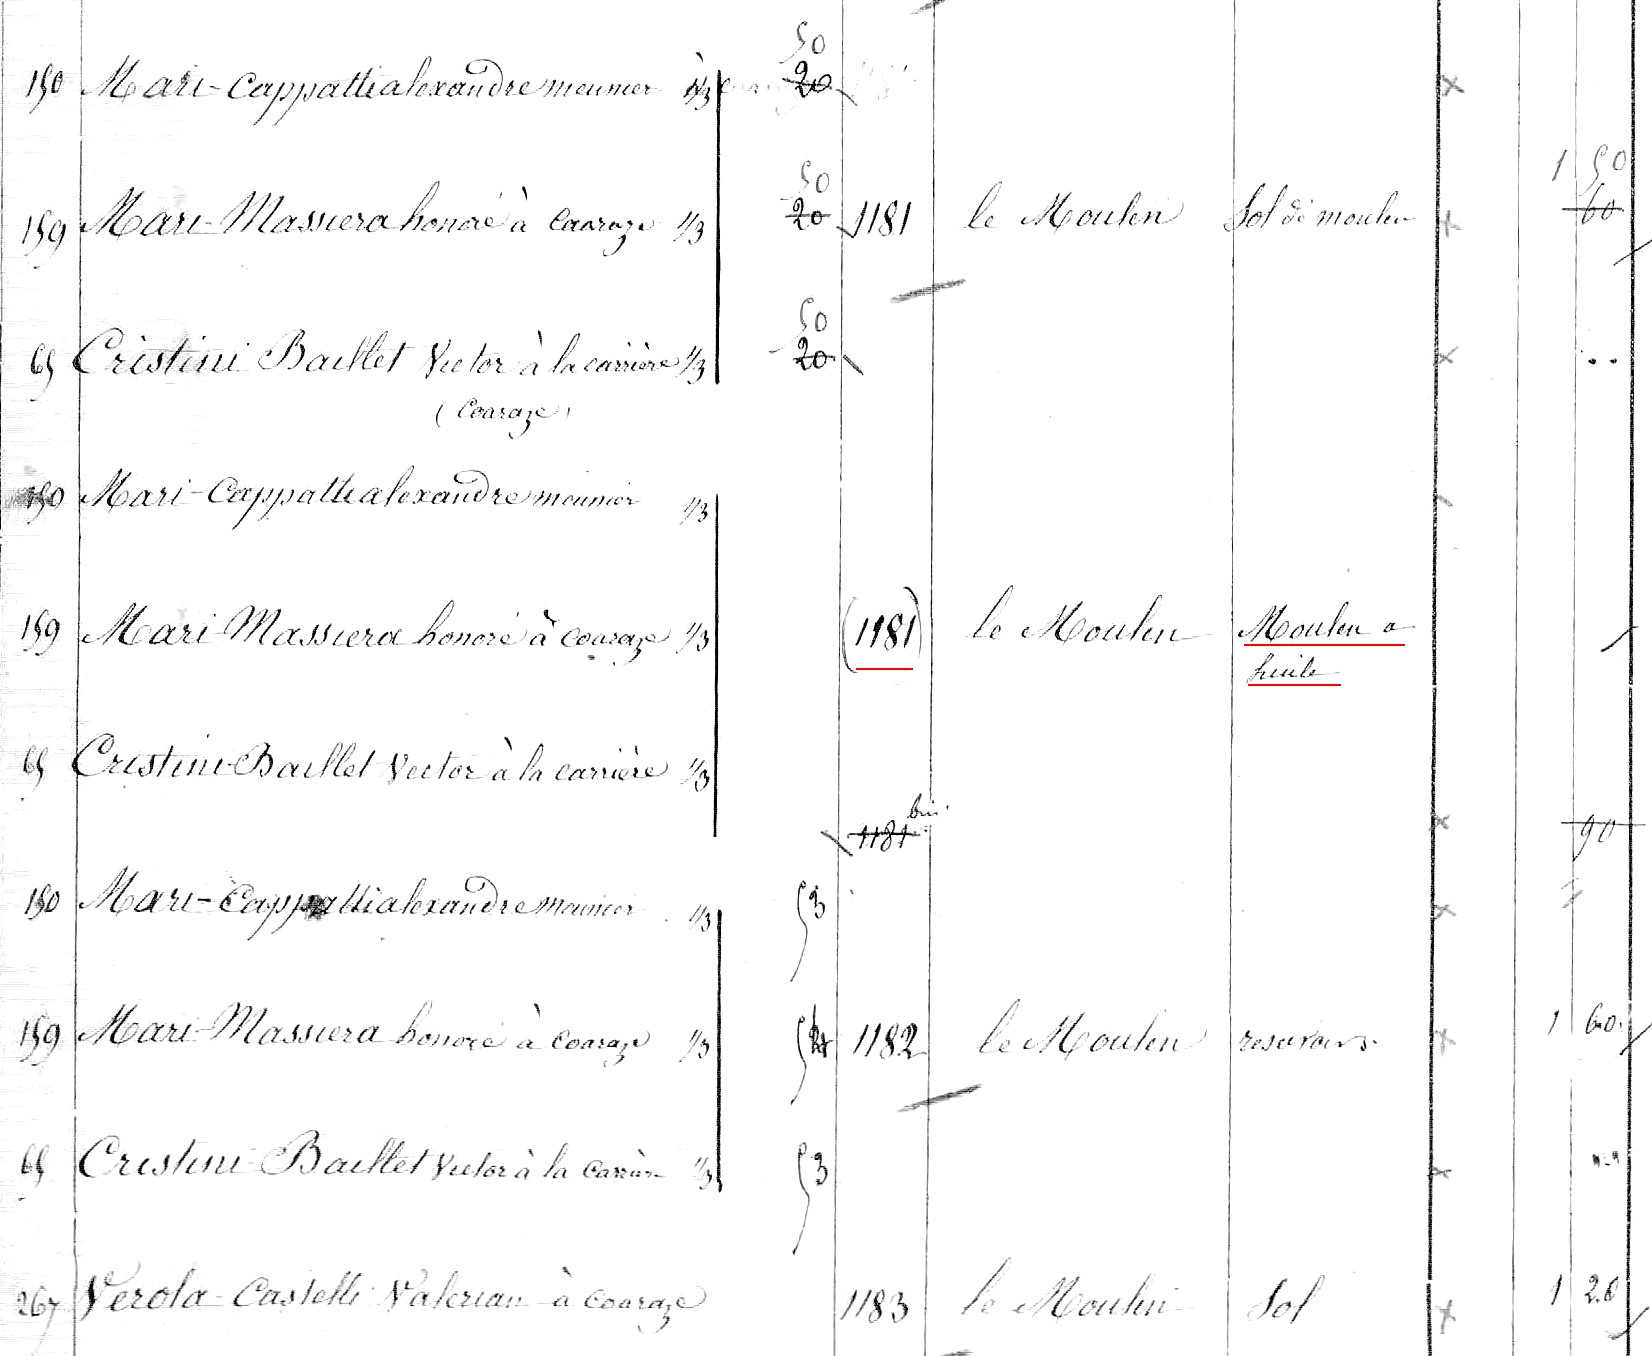 50
150 Mari-Cappatti alexandre meunier 1/3 20
1 50
50
159 Mari-Massiera honoré à Coaraze 1/3 20 1181 le Moulin Sol de moulin 60
50
65 Cristini Baillet Victor à la carrière 1/3 20
(Coaraze)
150 Mari-Cappatti alexandre meunier 1/3
159 Mari Massiera honoré à Coaraze 1/3 (1181) le Moulin Moulin a
huile
65 Cristini-Baillet Victor à la carrière 1/3
1181 bis 90
150 Mari-Cappatti alexandre meunier 1/3 53
159 Mari-Massiera honoré à Coaraze 1/3 1182 le Moulin reservoirs 1 60
65 Cristini Baillet Victor à la Carrière 1/3 53
267 Verola-Castelli Valerian à Coaraze 1183 le Moulin Sol 1 20